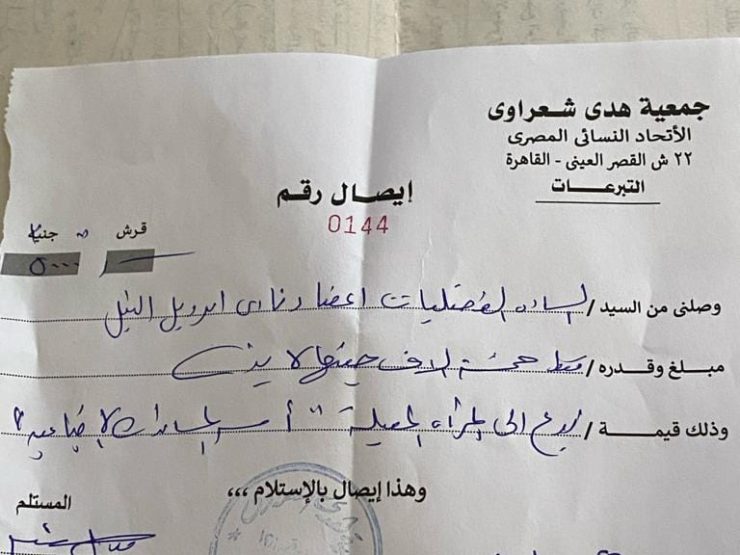 جمعية هدى شعراوى
الأتحاد النسائى المصرى
٢٢ ش القصر العينى - القاهرة
التبرعات
إيصال رقم
0144
قرش جنيه
٥٠٠٠
وصلنى من السيد / السادة الفضليات اعضاء نادى انرويل النيل
مبلغ وقدره / فقط خمسة الاف جنيها لا غير
وذلك قيمة / تبرع الى المرأة المعيلة "أسر
وهذا إيصال بالإستلام ،،،
المستلم